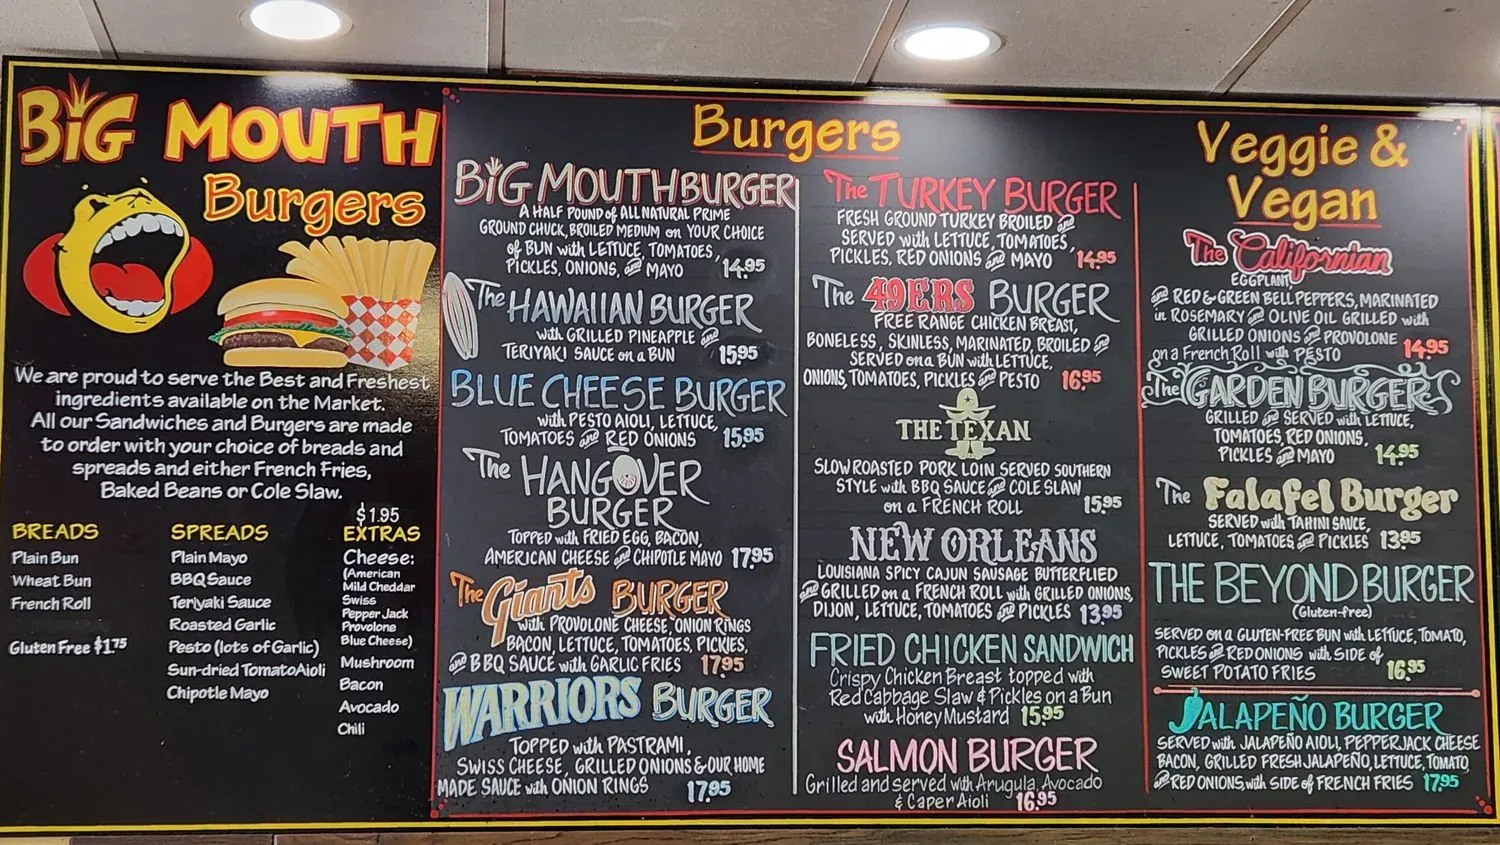 BIG MOUTH
Burgers
We are proud to serve the Best and Freshest
ingredients available on the Market.
All our Sandwiches and Burgers are made
to order with your choice of breads and
spreads and either French Fries,
Baked Beans or Cole Slaw.
BREADS
Plain Bun
Wheat Bun
French Roll
Gluten Free $1.75
SPREADS
Plain Mayo
BBQ Sauce
Teriyaki Sauce
Roasted Garlic
Pesto (lots of Garlic)
Sun-dried Tomato Aioli
Chipotle Mayo
$1.95
EXTRAS
Cheese:
(American
Mild Cheddar
Swiss
Pepper Jack
Provolone
Blue Cheese)
Mushroom
Bacon
Avocado
Chili
Burgers
BIG MOUTH BURGER
A HALF POUND of ALL NATURAL PRIME
GROUND CHUCK, BROILED MEDIUM on YOUR CHOICE
of BUN with LETTUCE, TOMATOES,
PICKLES, ONIONS, and MAYO 14.95
The HAWAIIAN BURGER
with GRILLED PINEAPPLE and
TERIYAKI SAUCE on a BUN 15.95
BLUE CHEESE BURGER
with PESTO AIOLI, LETTUCE,
TOMATOES and RED ONIONS 15.95
The HANGOVER
BURGER
TOPPED with FRIED EGG, BACON,
AMERICAN CHEESE and CHIPOTLE MAYO 17.95
The Giants BURGER
with PROVOLONE CHEESE, ONION RINGS
BACON, LETTUCE, TOMATOES, PICKIES,
and BBQ SAUCE with GARLIC FRIES 17.95
WARRIORS BURGER
TOPPED with PASTRAMI,
SWISS CHEESE, GRILLED ONIONS & OUR HOME
MADE SAUCE with ONION RINGS 17.95
The TURKEY BURGER
FRESH GROUND TURKEY BROILED and
SERVED with LETTUCE, TOMATOES,
PICKLES, RED ONIONS and MAYO 14.95
The 49ERS BURGER
FREE RANGE CHICKEN BREAST,
BONELESS, SKINLESS, MARINATED, BROILED and
SERVED on a BUN with LETTUCE,
ONIONS, TOMATOES, PICKLES and PESTO 16.95
THE TEXAN
SLOW ROASTED PORK LOIN SERVED SOUTHERN
STYLE with BBQ SAUCE and COLE SLAW
on a FRENCH ROLL 15.95
NEW ORLEANS
LOUISIANA SPICY CAJUN SAUSAGE BUTTERFLIED
and GRILLED on a FRENCH ROLL with GRILLED ONIONS,
DIJON, LETTUCE, TOMATOES and PICKLES 13.95
FRIED CHICKEN SANDWICH
Crispy Chicken Breast topped with
Red Cabbage Slaw & Pickles on a Bun
with Honey Mustard 15.95
SALMON BURGER
Grilled and served with Arugula, Avocado
& Caper Aioli 16.95
Veggie &
Vegan
The Californian
EGGPLANT
and RED & GREEN BELL PEPPERS, MARINATED
in ROSEMARY and OLIVE OIL GRILLED with
GRILLED ONIONS and PROVOLONE
on a French Roll with PESTO 14.95
The GARDEN BURGER
GRILLED and SERVED with LETTUCE,
TOMATOES, RED ONIONS,
PICKLES and MAYO 14.95
The Falafel Burger
SERVED with TAHINI SAUCE,
LETTUCE, TOMATOES and PICKLES 13.95
THE BEYOND BURGER
(Gluten-free)
SERVED on a GLUTEN-FREE BUN with LETTUCE, TOMATO,
PICKLES and RED ONIONS with SIDE of
SWEET POTATO FRIES 16.95
JALAPEÑO BURGER
SERVED with JALAPEÑO AIOLI, PEPPERJACK CHEESE
BACON, GRILLED FRESH JALAPEÑO, LETTUCE, TOMATO,
and RED ONIONS, with SIDE of FRENCH FRIES 17.95